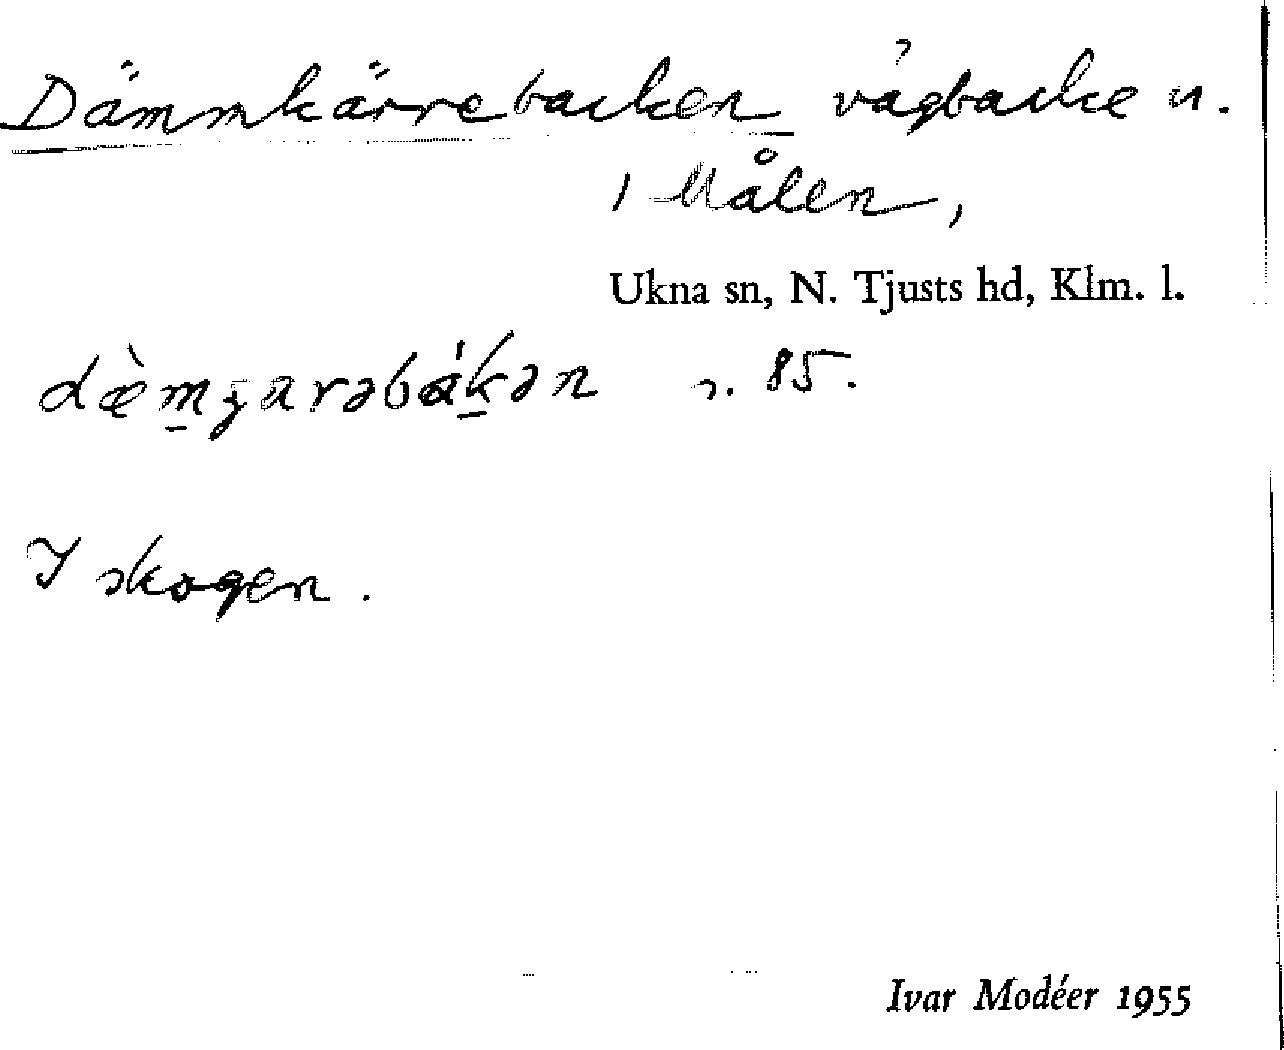 Dämmkärrebacken vägbacke n.
i Målen,
Ukna sn, N. Tjusts hd, Klm. l.
s. 85.
I skogen.
Ivar Modéer 1955